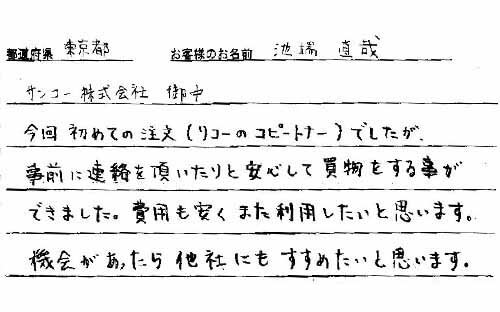 都道府県 東京都 お客様のお名前 池端 直哉
サンコー株式会社 御中
今回 初めての注文(リコーのコピートナー)でしたが、
事前に連絡を頂いたりと安心して買物をする事が
できました。費用も安くまた利用したいと思います。
機会があったら他社にもすすめたいと思います。